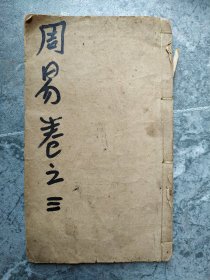 周易卷之三